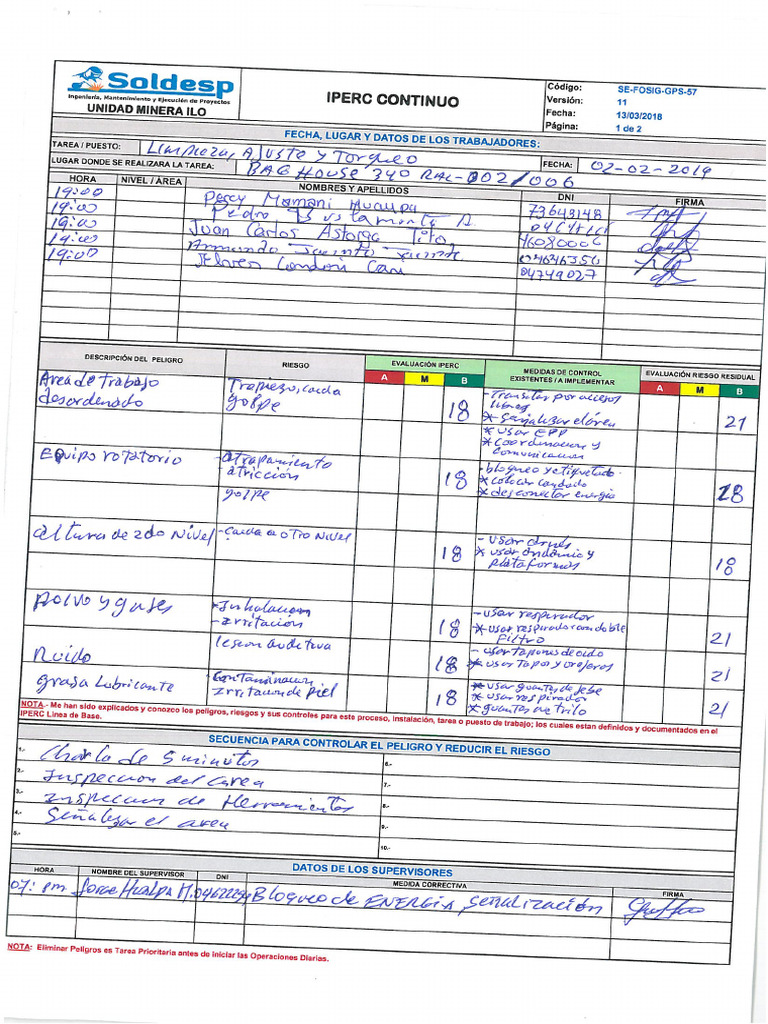 Soldesp
Ingeniería, Mantenimiento y Ejecución de Proyectos
UNIDAD MINERA ILO
IPERC CONTINUO
Código: SE-FOSIG-GPS-57
Versión: 11
Fecha: 13/03/2018
Página: 1 de 2
FECHA, LUGAR Y DATOS DE LOS TRABAJADORES:
TAREA / PUESTO: Limpieza, Ajuste y Torqueo
LUGAR DONDE SE REALIZARA LA TAREA: BAG HOUSE 340 RAL-002/006 FECHA: 02-02-2019
HORA NIVEL / ÁREA NOMBRES Y APELLIDOS DNI FIRMA
19:00 Percy Mamani Huallpa 73643148
19:00 Pedro Bustamante A.
19:00 Juan Carlos Astorga Tito 46080006
19:00 Armando Jacinto 04646356
19:00 Condori 04749027
DESCRIPCIÓN DEL PELIGRO RIESGO EVALUACIÓN IPERC MEDIDAS DE CONTROL EXISTENTES / A IMPLEMENTAR EVALUACIÓN RIESGO RESIDUAL
A M B A M B
Area de trabajo Tropiezo, caida - Transitar por accesos
desordenado golpe 18 libres 21
* señalizar el área
* usar EPP
* coordinacion y
comunicacion
Equipo rotatorio - atrapamiento - bloqueo y etiquetado
atricción 18 * colocar candado 18
golpe * desconectar energia
altura de 2do Nivel - Caida a otro Nivel - usar arnés
18 * usar andamio y 18
plataformas
polvo y gases - Inhalacion - usar respirador
- irritación 18 * usar respirador con doble
Filtro 21
Ruido lesion auditiva - usar tapones de oido
18 * usar tapos y orejeras 21
grasa Lubricante Contaminacion * usar guantes de jebe
Irritacion de piel 18 * usar respirador 21
* guantes nitrilo
NOTA.- Me han sido explicados y conozco los peligros, riesgos y sus controles para este proceso, instalación, tarea o puesto de trabajo; los cuales estan definidos y documentados en el
IPERC Linea de Base.
SECUENCIA PARA CONTROLAR EL PELIGRO Y REDUCIR EL RIESGO
1.- Charla de 5 minutos 6.-
2.- Inspeccion del area 7.-
3.- Inspeccion de Herramientas 8.-
4.- Señalizar el area 9.-
5.- 10.-
DATOS DE LOS SUPERVISORES
HORA NOMBRE DEL SUPERVISOR DNI MEDIDA CORRECTIVA FIRMA
07: pm Jorge Hualpa M. Bloqueo de ENERGIA, señalización
NOTA: Eliminar Peligros es Tarea Prioritaria antes de iniciar las Operaciones Diarias.